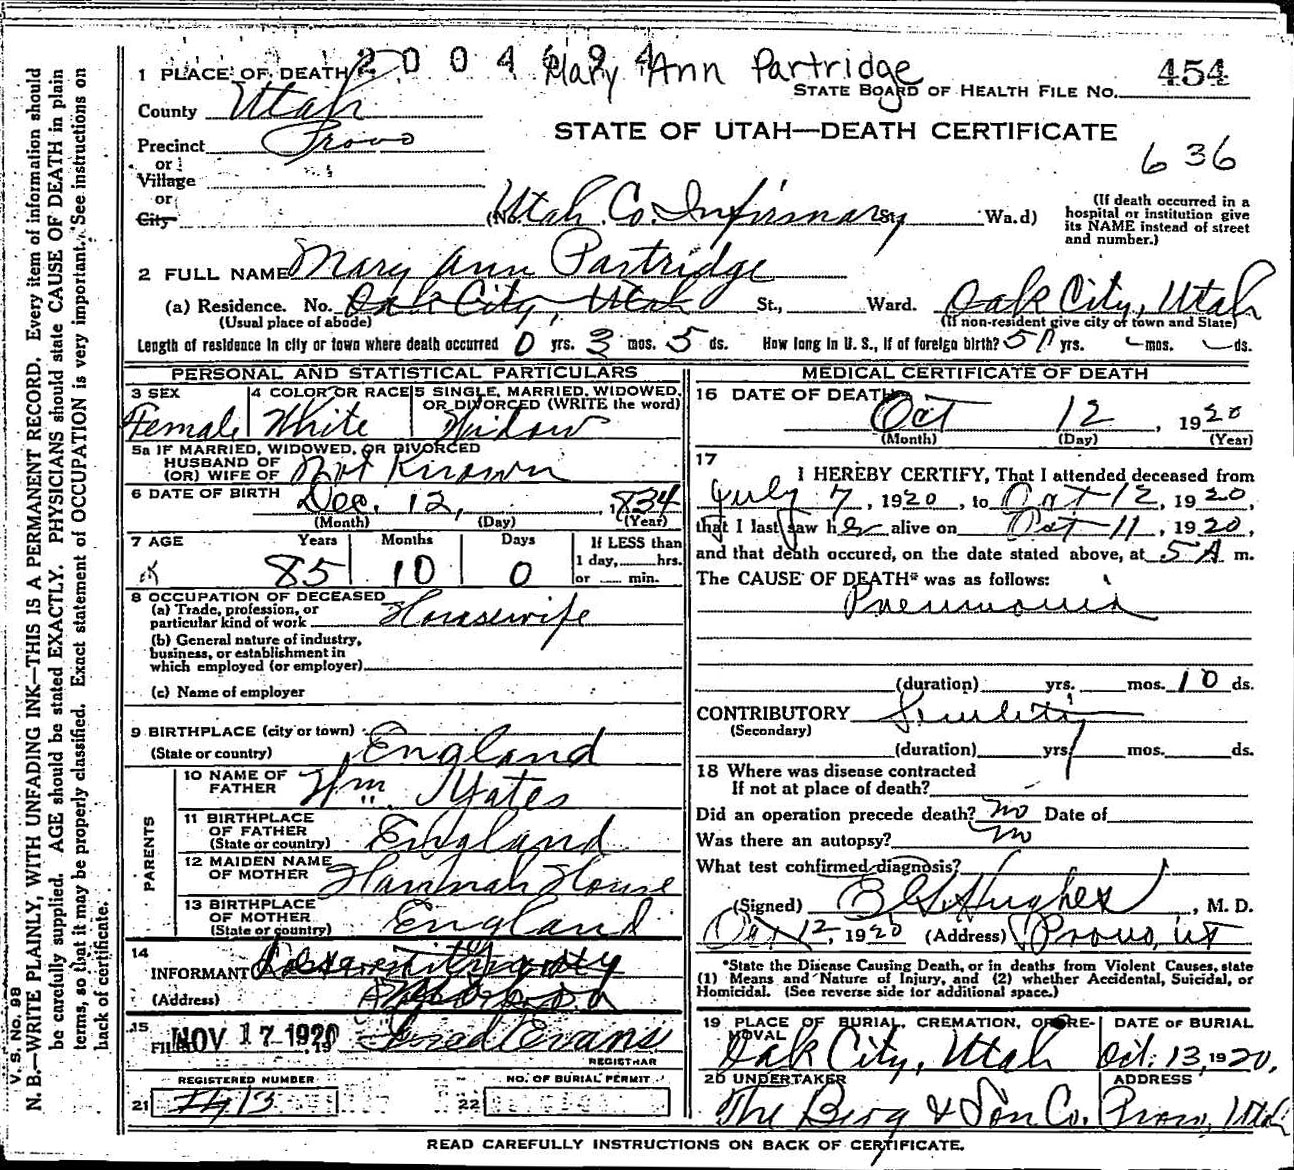 2004694 Mary Ann Partridge
1 PLACE OF DEATH
STATE BOARD OF HEALTH FILE NO. 454
County Utah
STATE OF UTAH—DEATH CERTIFICATE
Precinct Provo
636
or
Village
or
City
(No. Utah Co. Infirmary St. Wa.d)
(If death occurred in a
hospital or institution give
its NAME instead of street
and number.)
2 FULL NAME Mary Ann Partridge
(a) Residence. No. Oak City, Utah St., Ward. Oak City, Utah
(Usual place of abode) (If non-resident give city or town and State)
Length of residence in city or town where death occurred 0 yrs. 3 mos. 5 ds. How long in U. S., if of foreign birth? yrs. mos. ds.
PERSONAL AND STATISTICAL PARTICULARS
3 SEX Female
4 COLOR OR RACE White
5 SINGLE, MARRIED, WIDOWED,
OR DIVORCED (WRITE the word)
Widow
5a IF MARRIED, WIDOWED, OR DIVORCED
HUSBAND OF
(OR) WIFE OF Not Known
6 DATE OF BIRTH Dec. 12, 1834
(Month) (Day) (Year)
7 AGE Years Months Days If LESS than
1 day, hrs.
or min.
85 10 0
8 OCCUPATION OF DECEASED
(a) Trade, profession, or
particular kind of work Housewife
(b) General nature of industry,
business, or establishment in
which employed (or employer)
(c) Name of employer
9 BIRTHPLACE (city or town)
(State or country) England
PARENTS
10 NAME OF
FATHER Wm. Yates
11 BIRTHPLACE
OF FATHER
(State or country) England
12 MAIDEN NAME
OF MOTHER Hannah House
13 BIRTHPLACE
OF MOTHER
(State or country) England
14
INFORMANT
(Address)
15
FILED NOV 17 1920, 19 Fred Evans
REGISTRAR
REGISTERED NUMBER NO. OF BURIAL PERMIT
21 22
MEDICAL CERTIFICATE OF DEATH
16 DATE OF DEATH
Oct 12, 1920
(Month) (Day) (Year)
17
I HEREBY CERTIFY, That I attended deceased from
July 7, 1920, to Oct 12, 1920,
that I last saw her alive on Oct 11, 1920,
and that death occured, on the date stated above, at 5 A m.
The CAUSE OF DEATH* was as follows:
Pneumonia
(duration) yrs. mos. 10 ds.
CONTRIBUTORY Senility
(Secondary)
(duration) yrs. mos. ds.
18 Where was disease contracted
If not at place of death?
Did an operation precede death? no Date of
Was there an autopsy? no
What test confirmed diagnosis?
(Signed) Hughes, M. D.
Oct 12, 1920 (Address) Provo, Ut
*State the Disease Causing Death, or in deaths from Violent Causes, state
(1) Means and Nature of Injury, and (2) whether Accidental, Suicidal, or
Homicidal. (See reverse side for additional space.)
19 PLACE OF BURIAL, CREMATION, OR RE-
MOVAL
Oak City, Utah
DATE OF BURIAL
Oct. 13, 1920.
20 UNDERTAKER
The Berg & Son Co.
ADDRESS
Provo, Utah
READ CAREFULLY INSTRUCTIONS ON BACK OF CERTIFICATE.
V. S. NO. 98
N. B.—WRITE PLAINLY, WITH UNFADING INK—THIS IS A PERMANENT RECORD. Every item of information should
be carefully supplied. AGE should be stated EXACTLY. PHYSICIANS should state CAUSE OF DEATH in plain
terms, so that it may be properly classified. Exact statement of OCCUPATION is very important. See instructions on
back of certificate.